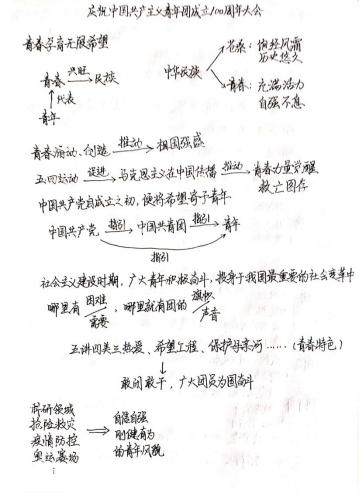 庆祝中国共产主义青年团成立100周年大会
青春孕育无限希望
青春 兴旺 民族
代表
青年
中华民族
苍桑：饱经风霜
历史悠久
青春：充满活力
自强不息
青春活动、创造 推动 祖国强盛
五四运动 促进 马克思主义在中国传播 推动 青春力量觉醒
救亡图存
中国共产党自成立之初，便将希望寄予青年
中国共产党 指引 中国共青团 指引 青年
指引
社会主义建设时期，广大青年积极奋斗，投身于我国最重要的社会变革中
哪里有 困难 需要，哪里就有团的 旗帜 声音
五讲四美三热爱、希望工程、保护母亲河……（青春特色）
敢闯敢干，广大团员为国奋斗
科研领域
抢险救灾
疫情防控
奥运赛场
自信自强
刚健有为
的青年风貌